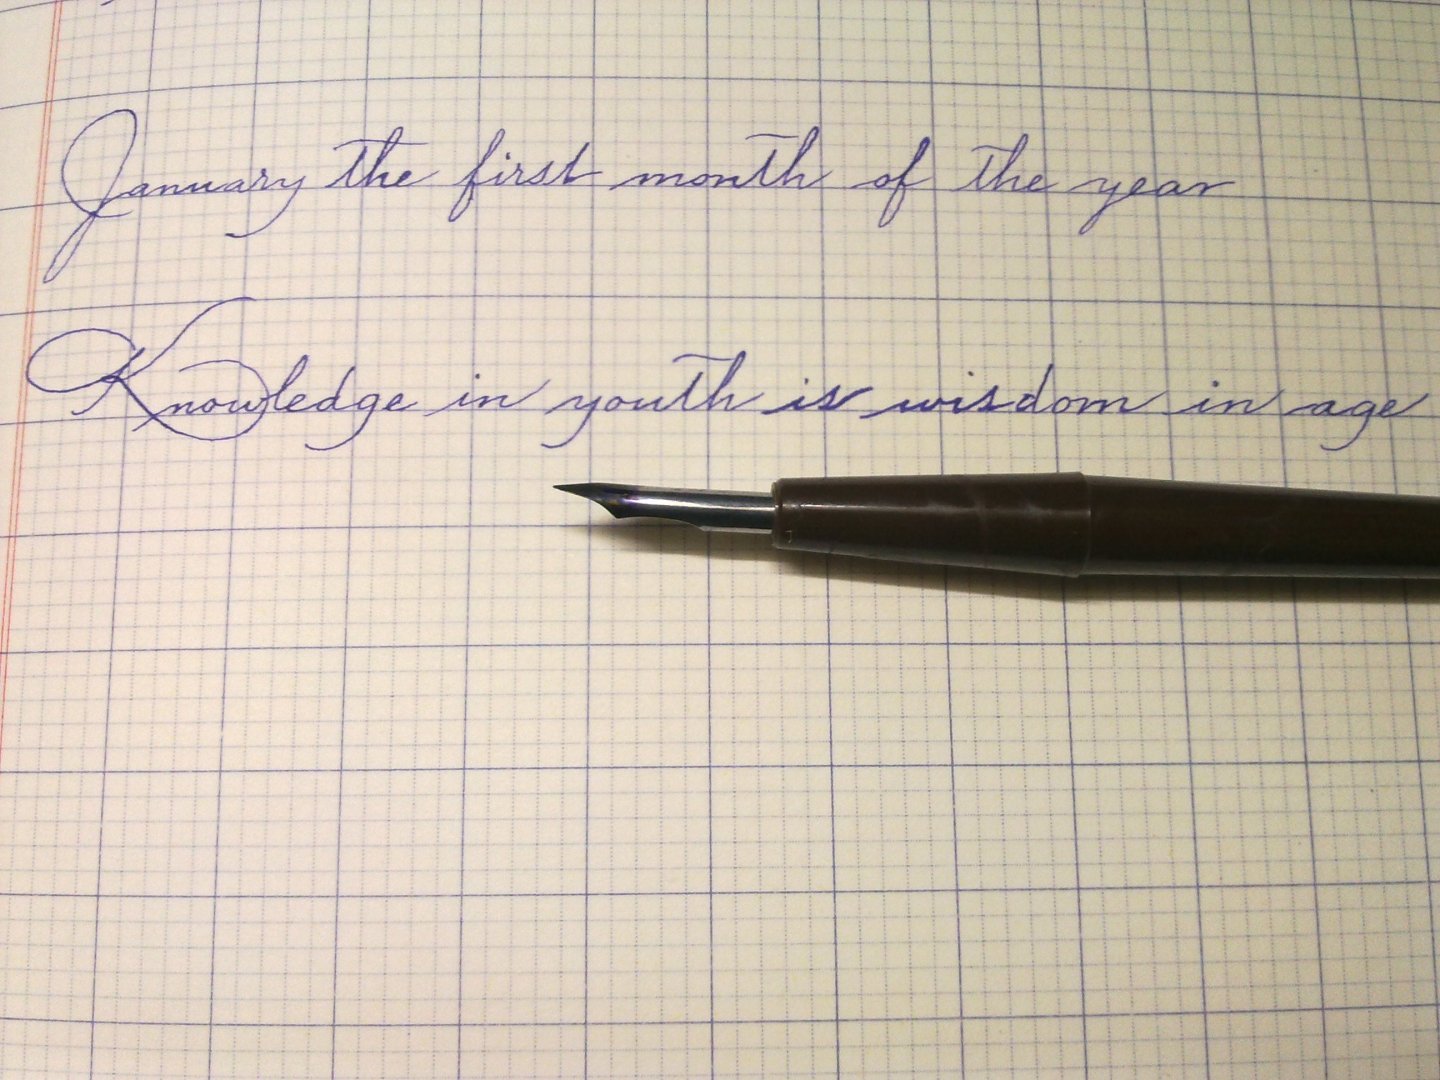 January the first month of the year
Knowledge in youth is wisdom in age